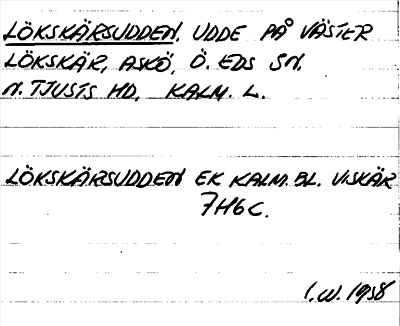 LÖKSKÄRSUDDEN, UDDE PÅ VÄSTER
LÖKSKÄR, ASKÖ, Ö. EDS SN.
N. TJUSTS HD, KALM. L.
LÖKSKÄRSUDDEN EK KALM. BL. VISKÄR
7H6C.
I.W. 1958